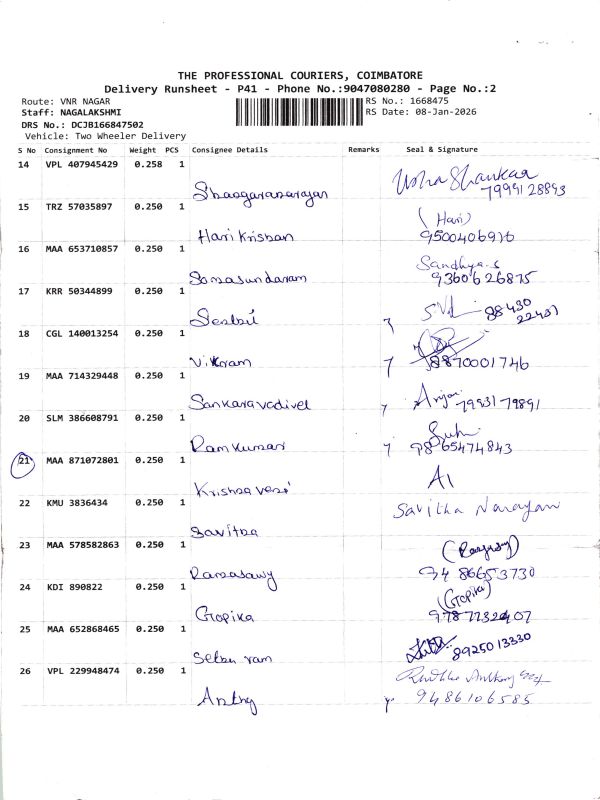 THE PROFESSIONAL COURIERS, COIMBATORE
Delivery Runsheet - P41 - Phone No.:9047080280 - Page No.:2
Route: VNR NAGAR
RS No.: 1668475
Staff: NAGALAKSHMI
RS Date: 08-Jan-2026
DRS No.: DCJB166847502
Vehicle: Two Wheeler Delivery
S No Consignment No Weight PCS Consignee Details Remarks Seal & Signature
14 VPL 407945429 0.258 1
Usha Shankar
15 TRZ 57035897 0.250 1
(Hari)
Hari Krishan
16 MAA 653710857 0.250 1
Sandhya.S
Somasundaram 9360626875
17 KRR 50344899 0.250 1
88430
22437
18 CGL 140013254 0.250 1
Vikram 8870001746
19 MAA 714329448 0.250 1
Sankaravadivel
20 SLM 386608791 0.250 1
Ramkumar 9865474843
21 MAA 871072801 0.250 1
22 KMU 3836434 0.250 1
Savitha Narayan
Savitha
23 MAA 578582863 0.250 1
Ramasawy 94 86653730
24 KDI 890822 0.250 1
(Gopika)
Gopika
25 MAA 652868465 0.250 1
8925013330
26 VPL 229948474 0.250 1
9486106585